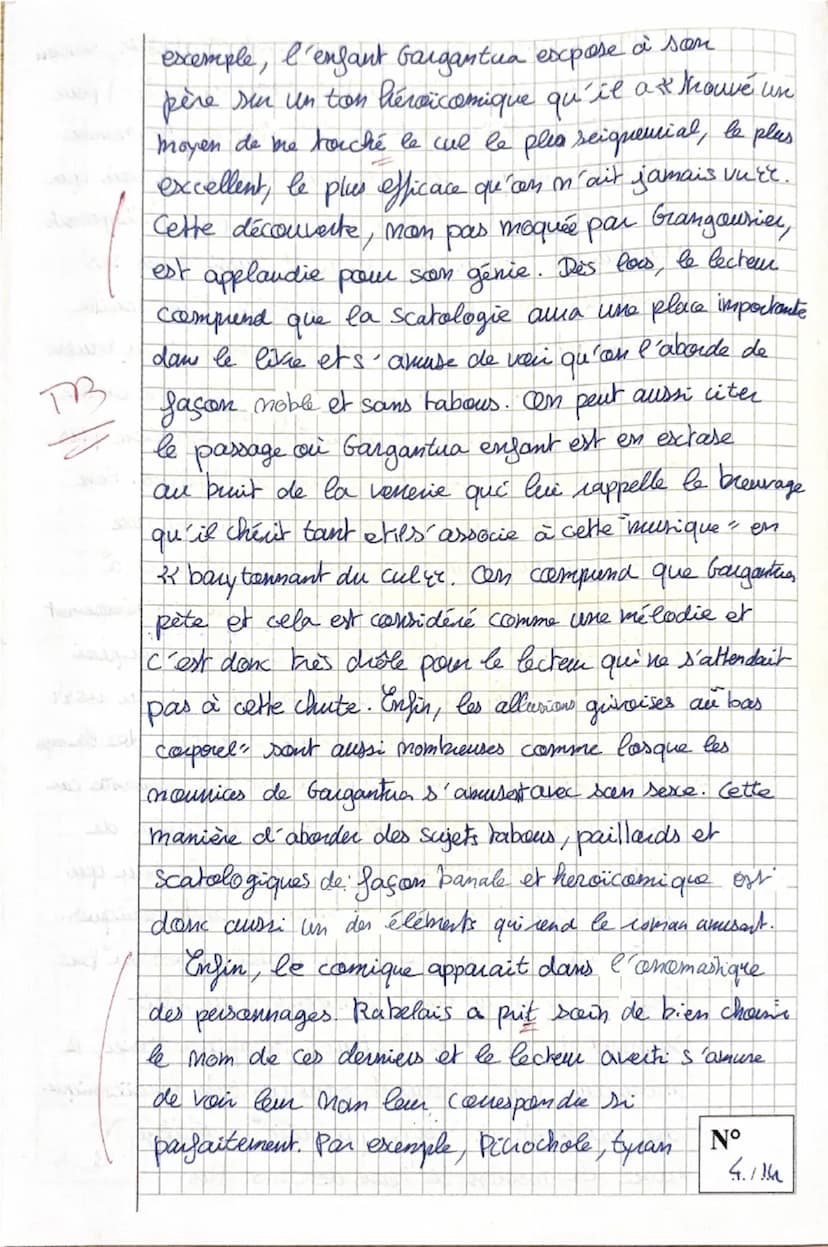 exemple, l'enfant Gargantua expose à son
père sur un ton héroïcomique qu'il a « trouvé un
moyen de me torché le cul le plus seigneurial, le plus
excellent, le plus efficace qu'on n'ait jamais vu ».
Cette découverte, non pas moquée par Grangousier,
est applaudie pour son génie. Dès lors, le lecteur
comprend que la scatologie aura une place importante
dans le livre et s'amuse de voir qu'on l'aborde de
TB façon noble et sans tabous. On peut aussi citer
le passage où Gargantua enfant est en extase
au bruit de la verrerie qui lui rappelle le breuvage
qu'il chérit tant et il s'associe à cette "musique" en
« barytonnant du cul ». On comprend que Gargantua
pète et cela est considéré comme une mélodie et
c'est donc très drôle pour le lecteur qui ne s'attendait
pas à cette chute. Enfin, les allusions grivoises au "bas
corporel" sont aussi nombreuses comme losque les
nourrices de Gargantua s'amusent avec son sexe. Cette
manière d'aborder des sujets tabous, paillards et
scatologiques de façon banale et heroïcomique est
donc aussi un des éléments qui rend le roman amusant.
Enfin, le comique apparait dans l'onomastique
des personnages. Rabelais a prit soin de bien choisir
le nom de ces derniers et le lecteur averti s'amuse
de voir leur nom leur correspondre si
parfaitement. Par exemple, Picrochole, tyran
N°
4./14